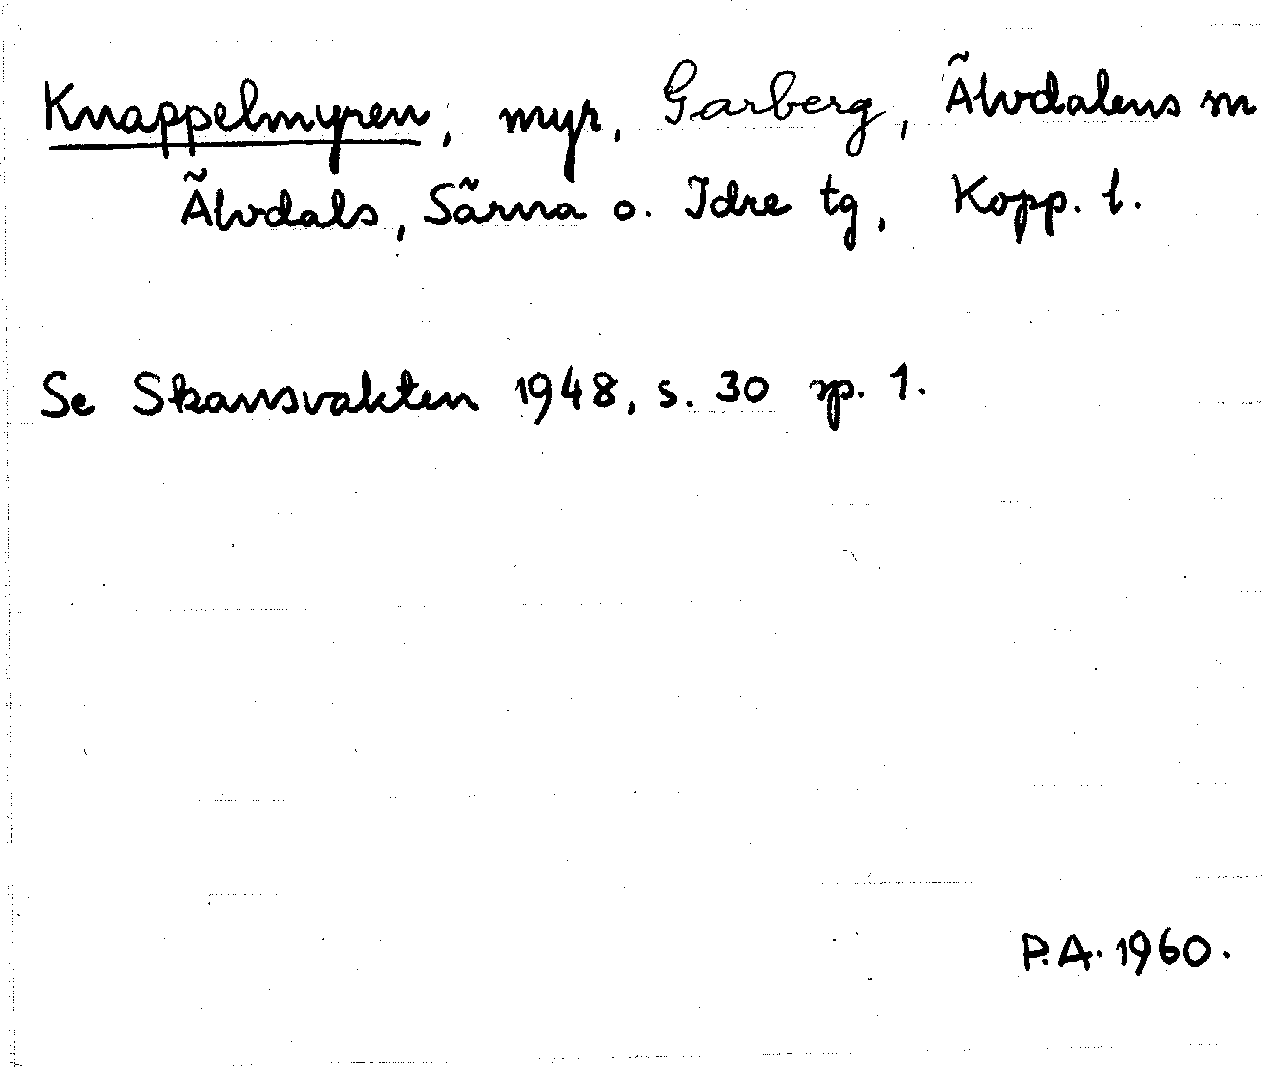 Knappelmyren, myr, Garberg, Älvdalens sn
Älvdals, Särna o. Idre tg, Kopp. l.
Se Skansvakten 1948, s. 30 sp. 1.
P.A. 1960.